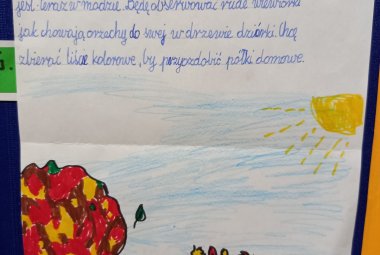 jest teraz w modzie. Będę obserwować rude wiewiórki
jak chowają orzechy do swej w drzewie dziórki. Chcę
zbierać liście kolorowe, by przyozdobić półki domowe.